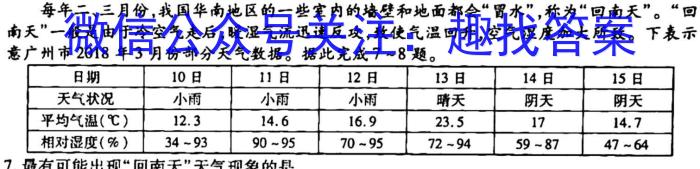 每年二、三月份,我国华南地区的一些室内的墙壁和地面都会“冒水”,称为“回南天”。“回
南天”一般是由于冷空气走后,暖湿气流迅速反攻,致使气温回升,空气湿度加大所致。下表示
微信公众号关注:趣找答案
意广州市2018年3月份部分天气数据。据此完成7~8题。
日期 10日 11日 12日 13日 14日 15日
天气状况 小雨 小雨 小雨 晴天 阴天 阴天
平均气温(℃) 12.3 14.6 16.9 23.5 17 14.7
相对湿度(%) 34~93 90~95 70~95 72~94 59~87 47~64
7.最有可能出现“回南天”天气现象的是